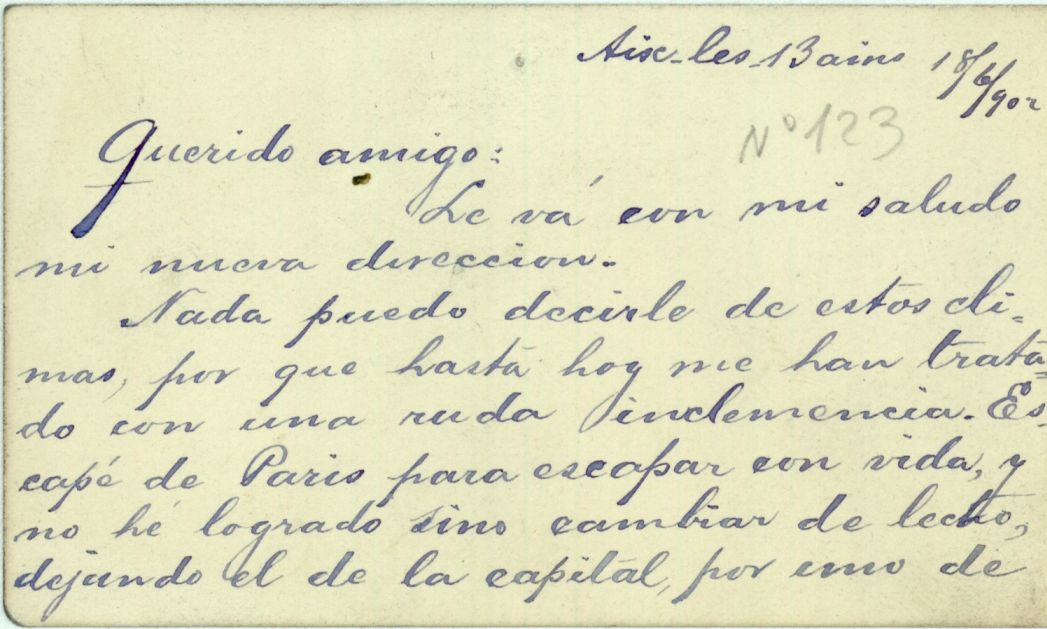 Aix-les-Bains 18/6/902
Nº 123
Querido amigo:
Le vá con mi saludo
mi nueva direccion.
Nada puedo decirle de estos cli-
mas, por que hasta hoy me han trata-
do con una ruda inclemencia. Es-
capé de Paris para escapar con vida, y
no hé logrado sino cambiar de lecho,
dejando el de la capital, por uno de